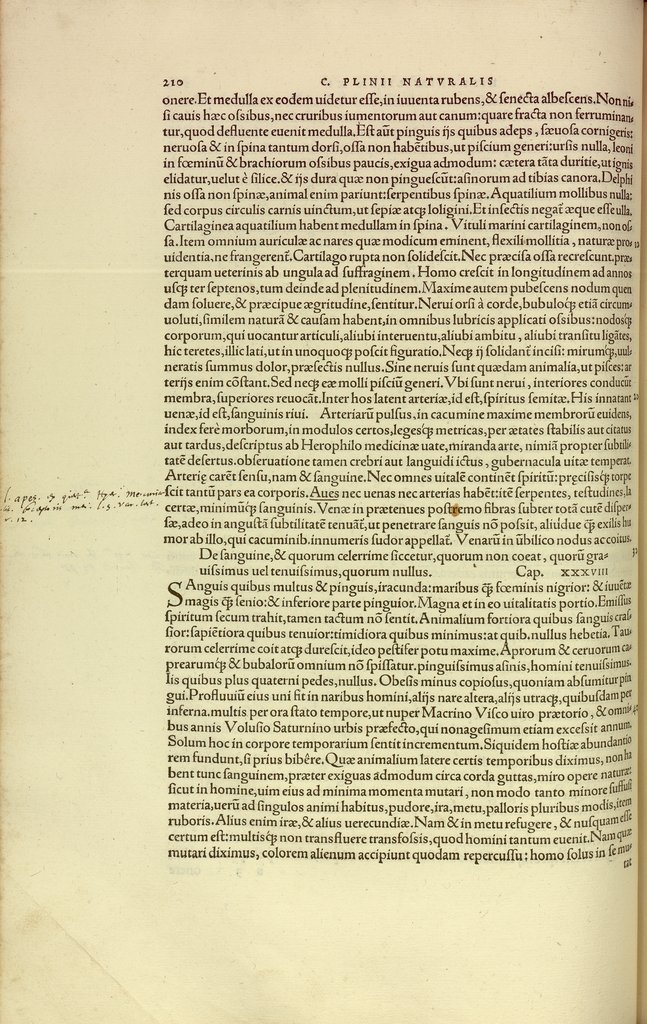 210 C. PLINII NATVRALIS
onere. Et medulla ex eodem uidetur esse, in iuuenta rubens, & senecta albescens. Non ni-
si cauis hæc ossibus, nec cruribus iumentorum aut canum: quare fracta non ferruminan-
tur, quod defluente euenit medulla. Est aũt pinguis ijs quibus adeps, sæuosa cornigeris:
neruosa & in spina tantum dorsi, ossa non habẽtibus, ut piscium generi: ursis nulla, leoni
in fœminũ & brachiorum ossibus paucis, exigua admodum: cætera tãta duritie, ut ignis
elidatur, uelut è silice. & ijs dura quæ non pinguescũt: asinorum ad tibias canora. Delphi
nis ossa non spinæ, animal enim pariunt: serpentibus spinæ. Aquatilium mollibus nulla:
sed corpus circulis carnis uinctum, ut sepiæ atq; loligini. Et insectis negat̃ æque esse ulla.
Cartilaginea aquatilium habent medullam in spina. Vituli marini cartilaginem, non os-
sa. Item omnium auriculæ ac nares quæ modicum eminent, flexili mollitia, naturæ pro 10
uidentia, ne frangerent̃. Cartilago rupta non solidescit. Nec præcisa ossa recrescunt, præ
terquam ueterinis ab ungula ad suffraginem. Homo crescit in longitudinem ad annos
usq; ter septenos, tum deinde ad plenitudinem. Maxime autem pubescens nodum quen
dam soluere, & præcipue ægritudine, sentitur. Nerui orsi à corde, bubuloq; etiã circum
uoluti, similem naturã & causam habent, in omnibus lubricis applicati ossibus: nodosq;
corporum, qui uocantur articuli, aliubi interuentu, aliubi ambitu, aliubi transitu ligãtes,
hic teretes, illic lati, ut in unoquoq; poscit figuratio. Neq; ij solidant̃ incisi: mirumq;, uul
neratis summus dolor, præsectis nullus. Sine neruis sunt quædam animalia, ut pisces: ar
terijs enim cõstant. Sed neq; eæ molli pisciũ generi. Vbi sunt nerui, interiores conducũt
membra, superiores reuocãt. Inter hos latent arteriæ, id est, spiritus semitæ. His innatant 20
uenæ, id est, sanguinis riui. Arteriarũ pulsus, in cacumine maxime membrorũ euidens,
index ferè morborum, in modulos certos, legesq; metricas, per ætates stabilis aut citatus
aut tardus, descriptus ab Herophilo medicinæ uate, miranda arte, nimiã propter subtili
tatẽ desertus. obseruatione tamen crebri aut languidi ictus, gubernacula uitæ temperat.
Arterię carẽt sensu, nam & sanguine. Nec omnes uitalẽ continẽt spiritũ: præcisisq; torpe
scit tantũ pars ea corporis. Aues nec uenas nec arterias habẽt: itẽ serpentes, testudines, la
certæ, minimũq; sanguinis. Venæ in prætenues postremo fibras subter totã cutẽ disper-
sæ, adeo in angustã subtilitatẽ tenuãt̃, ut penetrare sanguis nõ possit, aliudue q̃ exilis hu
mor ab illo, qui cacuminib. innumeris sudor appellat̃. Venarũ in ũbilico nodus ac coitus.
De sanguine, & quorum celerrime siccetur, quorum non coeat, quorũ gra- 30
uissimus uel tenuissimus, quorum nullus. Cap. XXXVIII
SAnguis quibus multus & pinguis, iracunda: maribus q̃ fœminis nigrior: & iuuẽtæ
magis q̃ senio: & inferiore parte pinguior. Magna et in eo uitalitatis portio. Emissus
spiritum secum trahit, tamen tactum nõ sentit. Animalium fortiora quibus sanguis cras
sior: sapiẽtiora quibus tenuior: timidiora quibus minimus: at quib. nullus hebetia. Tau-
rorum celerrime coit atq; durescit, ideo pestifer potu maxime. Aprorum & ceruorum ca
prearumq; & bubalorũ omnium nõ spissatur. pinguissimus asinis, homini tenuissimus.
Iis quibus plus quaterni pedes, nullus. Obesis minus copiosus, quoniam absumitur pin
gui. Profluuiũ eius uni fit in naribus homini, alijs nare altera, alijs utraq;, quibusdam per
inferna. multis per ora stato tempore, ut nuper Macrino Visco uiro prætorio, & omni- 40
bus annis Volusio Saturnino urbis præfecto, qui nonagesimum etiam excessit annum.
Solum hoc in corpore temporarium sentit incrementum. Siquidem hostiæ abundantio
rem fundunt, si prius bibêre. Quæ animalium latere certis temporibus diximus, non ha
bent tunc sanguinem, præter exiguas admodum circa corda guttas, miro opere naturæ:
sicut in homine, uim eius ad minima momenta mutari, non modo tanto minore suffusi
materia, uerũ ad singulos animi habitus, pudore, ira, metu, palloris pluribus modis, item
ruboris. Alius enim iræ, & alius uerecundiæ. Nam & in metu refugere, & nusquam esse
certum est: multisq; non transfluere transfossis, quod homini tantum euenit. Nam quæ
mutari diximus, colorem alienum accipiunt quodam repercussu: homo solus in se mu-
tat